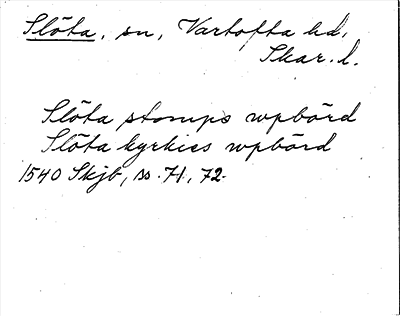 Slöta, sn, Vartofta hd,
Skar. l.
Slöta stomps wpbörd
Slöta kyrkies wpbörd
1540 Skjb, ss. 71, 72.